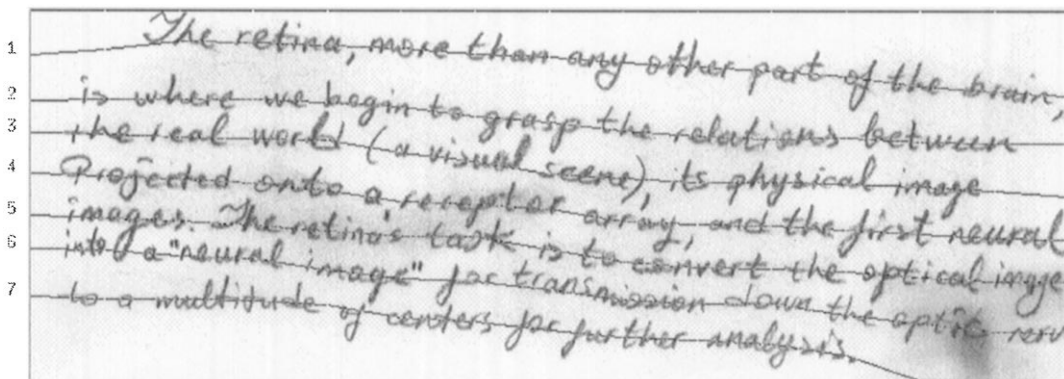 The retina, more than any other part of the brain,
is where we begin to grasp the relations between
the real world (a visual scene), its physical image
Projected onto a receptor array, and the first neural
images. The retina's task is to convert the optical image
into a "neural image" for transmission down the optic
to a multitude of centers for further analysis.
1
2
3
4
5
6
7